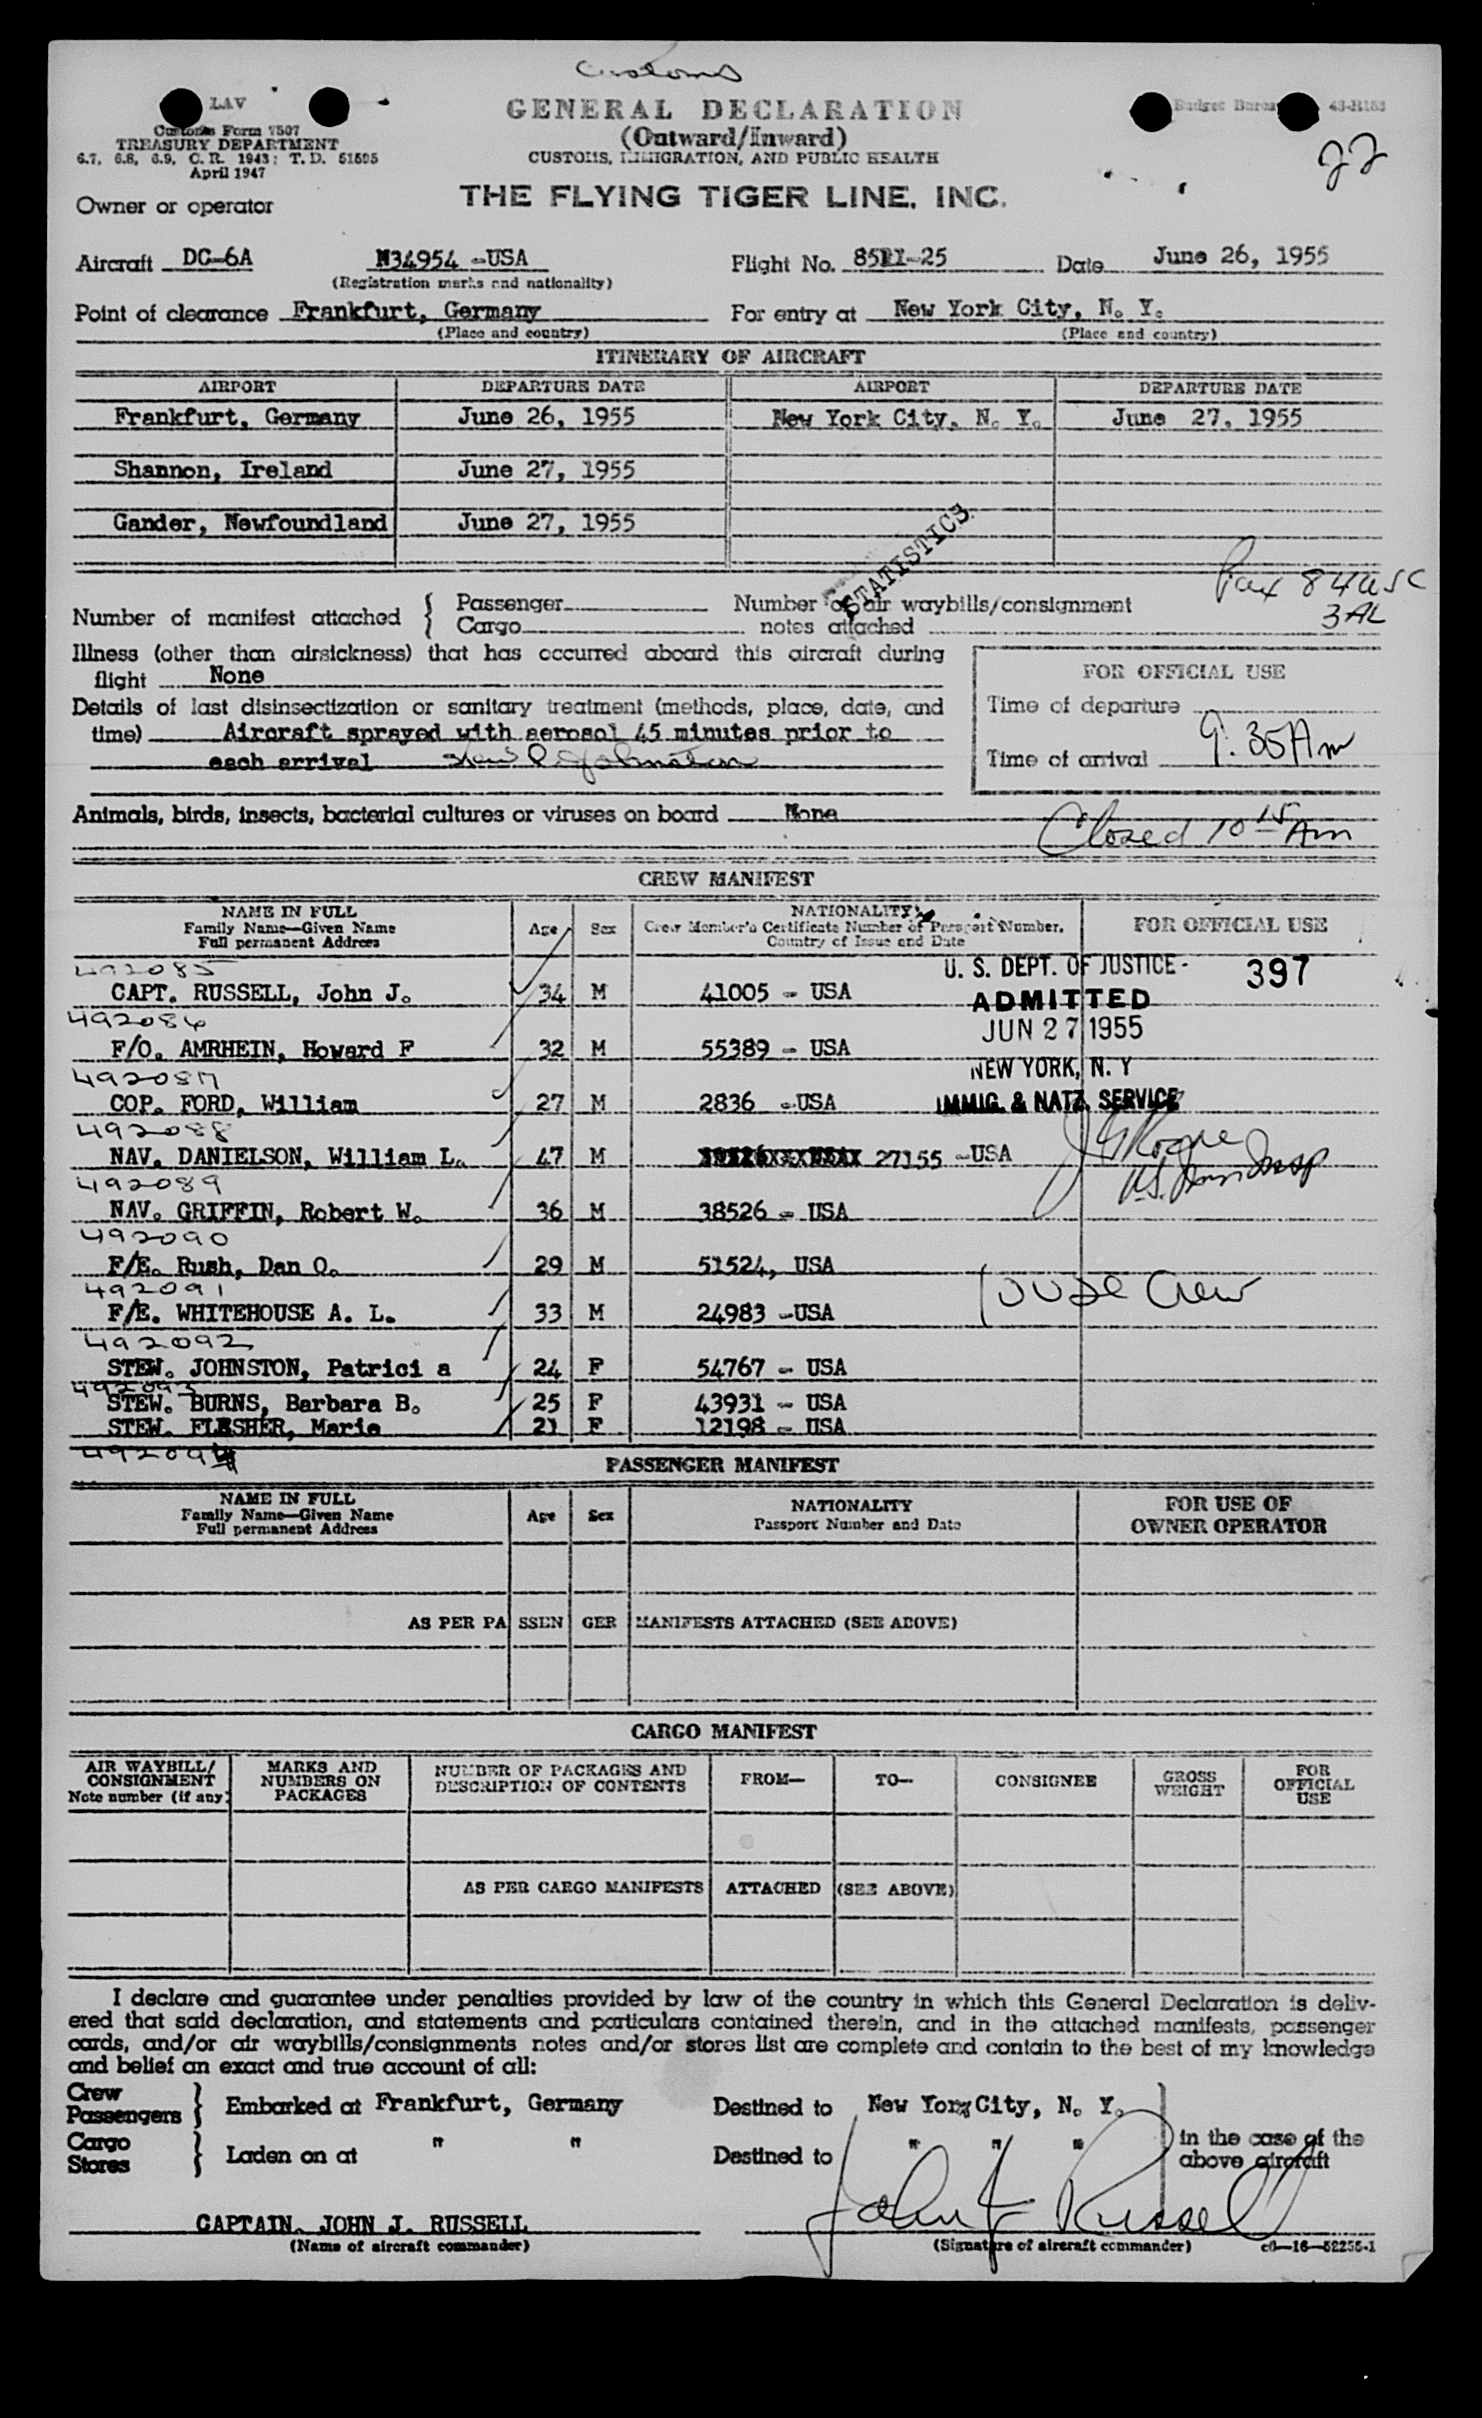 Customs
LAV
Customs Form 7507
TREASURY DEPARTMENT
6.7, 6.8, 6.9, C. R. 1943; T. D. 51595
April 1947
GENERAL DECLARATION
(Outward/Inward)
CUSTOMS, IMMIGRATION, AND PUBLIC HEALTH
22
Owner or operator THE FLYING TIGER LINE, INC.
Aircraft DC-6A N34954 -USA Flight No. Date June 26, 1955
(Registration marks and nationality)
Point of clearance Frankfurt, Germany For entry at New York City, N. Y.
(Place and country) (Place and country)
ITINERARY OF AIRCRAFT
AIRPORT DEPARTURE DATE AIRPORT DEPARTURE DATE
Frankfurt, Germany June 26, 1955 New York City, N. Y. June 27, 1955
Shannon, Ireland June 27, 1955
Gander, Newfoundland June 27, 1955
STATISTICS
Pax 84 USC
3 AL
Number of manifest attached { Passenger Number of air waybills/consignment
Cargo notes attached
Illness (other than airsickness) that has occurred aboard this aircraft during
flight None
FOR OFFICIAL USE
Details of last disinsectization or sanitary treatment (methods, place, date, and
time) Aircraft sprayed with aerosol 45 minutes prior to
each arrival
Time of departure
Time of arrival 9:35 Am
Animals, birds, insects, bacterial cultures or viruses on board None
Closed 10 15 Am
CREW MANIFEST
NAME IN FULL
Family Name—Given Name
Full permanent Address
Age Sex
NATIONALITY
Crew Member's Certificate Number of Passport Number,
Country of Issue and Date
FOR OFFICIAL USE
492085
CAPT. RUSSELL, John J. 34 M 41005 - USA
492086
F/O. AMRHEIN, Howard F 32 M 55389 - USA
492087
COP. FORD, William 27 M 2836 -USA
492088
NAV. DANIELSON, William L. 47 M 27155 -USA
492089
NAV. GRIFFIN, Robert W. 36 M 38526 - USA
492090
F/E. Rush, Dan O. 29 M 51524, USA
492091
F/E. WHITEHOUSE A. L. 33 M 24983 -USA
492092
STEW. JOHNSTON, Patrici a 24 F 54767 - USA
492093
STEW. BURNS, Barbara B. 25 F 43931 - USA
STEW. FLESHER, Marie 21 F 12198 - USA
492094
U. S. DEPT. OF JUSTICE -
ADMITTED
JUN 27 1955
NEW YORK, N. Y
IMMIG. & NATZ. SERVICE
397
Crew
PASSENGER MANIFEST
NAME IN FULL
Family Name—Given Name
Full permanent Address
Age Sex
NATIONALITY
Passport Number and Date
FOR USE OF
OWNER OPERATOR
AS PER PA SSEN GER MANIFESTS ATTACHED (SEE ABOVE)
CARGO MANIFEST
AIR WAYBILL/
CONSIGNMENT
Note number (if any)
MARKS AND
NUMBERS ON
PACKAGES
NUMBER OF PACKAGES AND
DESCRIPTION OF CONTENTS
FROM— TO— CONSIGNEE
GROSS
WEIGHT
FOR
OFFICIAL
USE
AS PER CARGO MANIFESTS ATTACHED (SEE ABOVE)
I declare and guarantee under penalties provided by law of the country in which this General Declaration is deliv-
ered that said declaration, and statements and particulars contained therein, and in the attached manifests, passenger
cards, and/or air waybills/consignments notes and/or stores list are complete and contain to the best of my knowledge
and belief an exact and true account of all:
Crew
Passengers } Embarked at Frankfurt, Germany Destined to New York City, N. Y.
Cargo
Stores } Laden on at " " Destined to " " "
in the case of the
above aircraft
CAPTAIN. JOHN J. RUSSELL John J Russell
(Name of aircraft commander) (Signature of aircraft commander) c6—16—52255-1